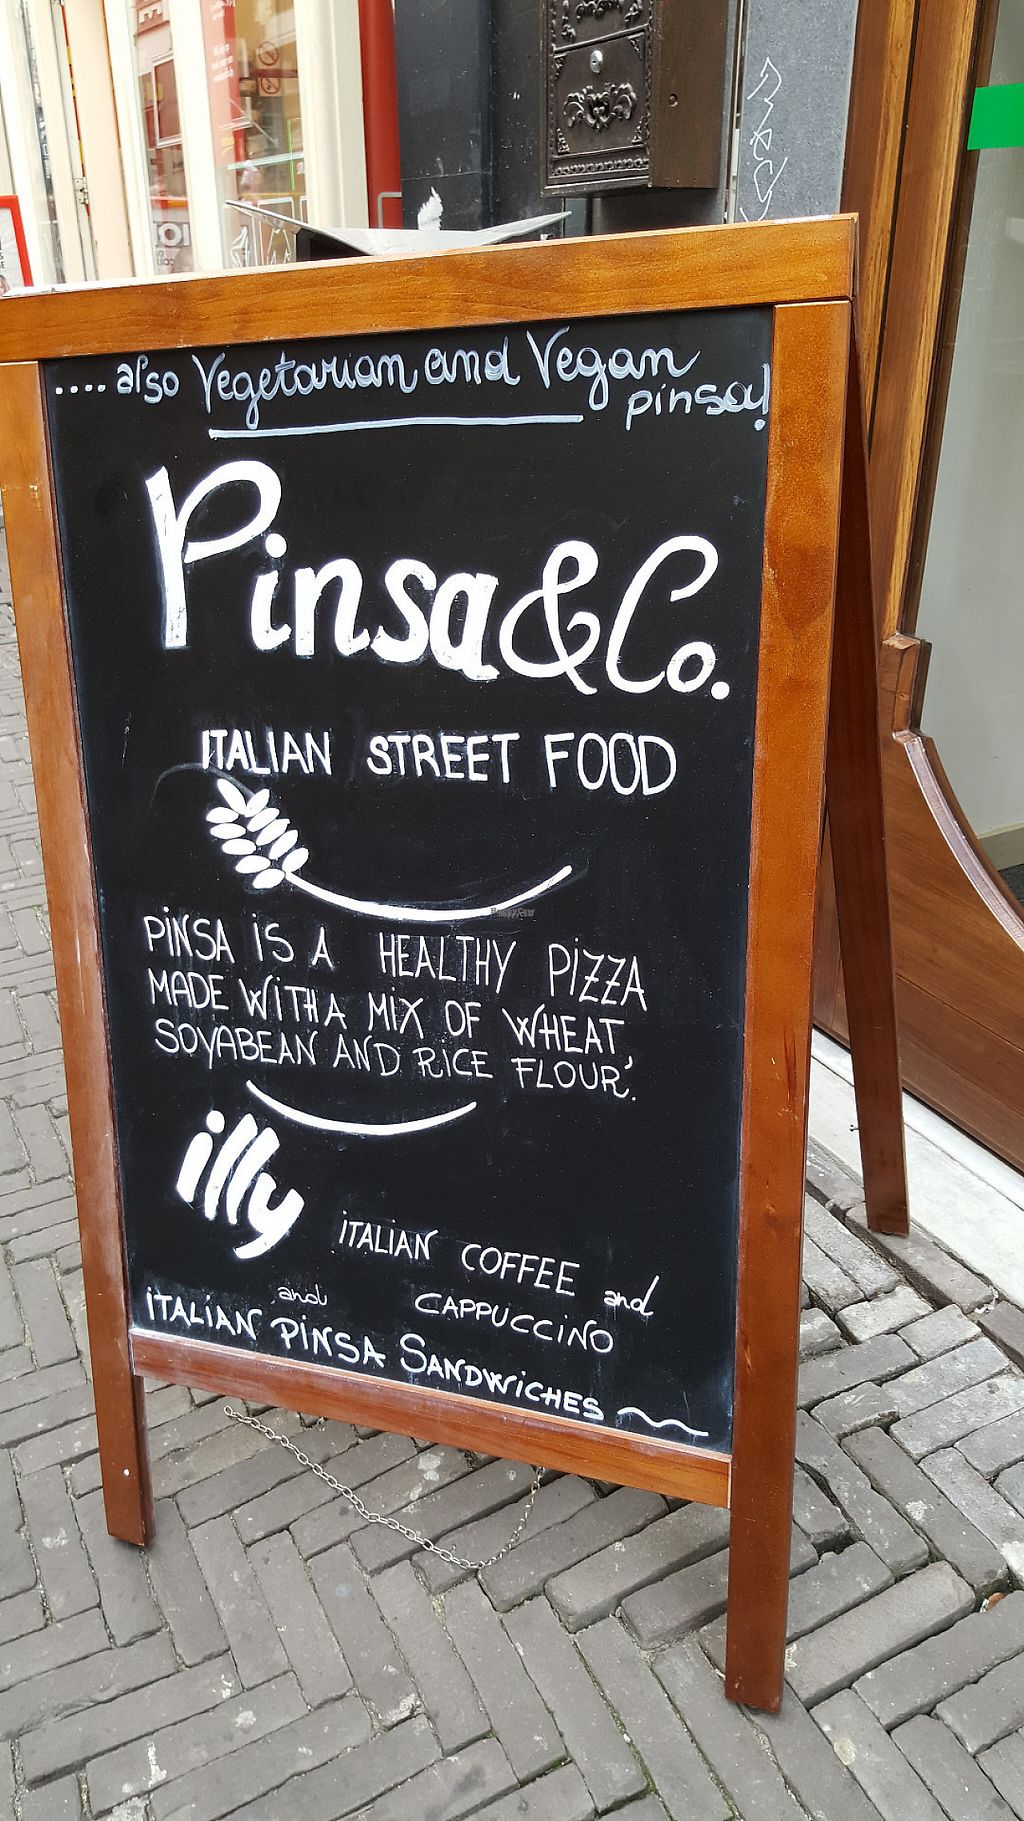 .... also Vegetarian and Vegan
pinsa!
Pinsa&Co.
ITALIAN STREET FOOD
HappyCow
PINSA IS A HEALTHY PIZZA
MADE WITH A MIX OF WHEAT,
SOYABEAN AND RICE FLOUR.
illy
ITALIAN COFFEE and
and CAPPUCCINO
ITALIAN PINSA SANDWICHES